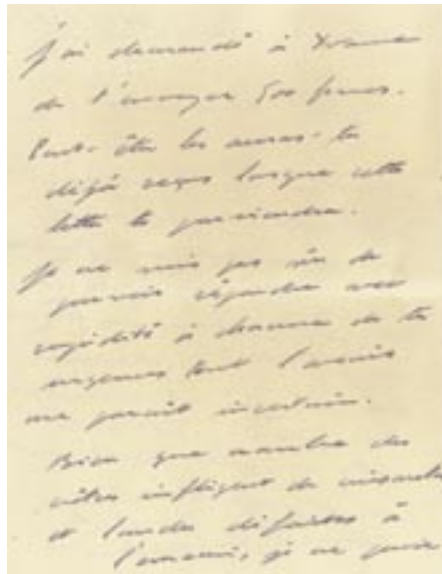 J'ai demandé à Yvonne
de t'envoyer 500 francs.
Peut-être les auras-tu
déjà reçus lorsque cette
lettre te parviendra.
Je ne suis pas sûr de
pouvoir répondre avec
rapidité à chacune de tes
urgences tant l'avenir
me paraît incertain.
Bien que nombre des
nôtres infligent de
et lourdes défaites à
l'ennemi, je ne